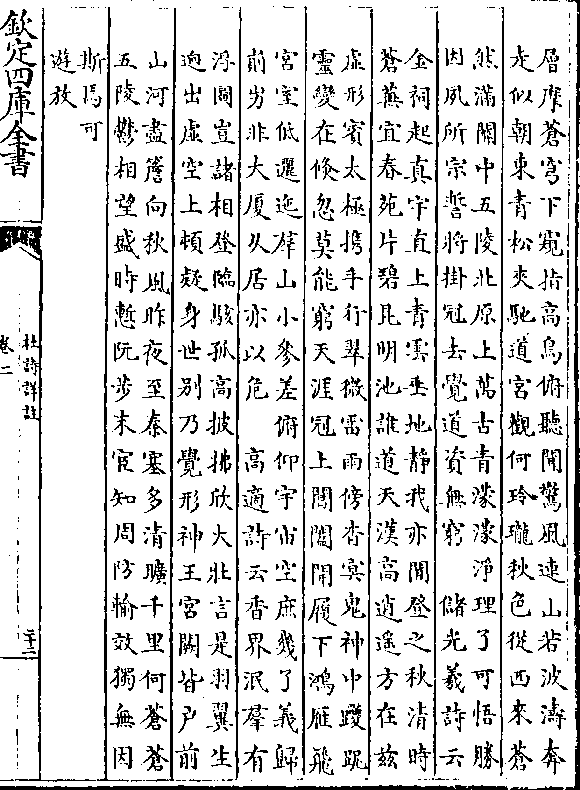 層摩蒼穹下窺指高鳥俯聽聞驚風連山若波濤奔
走似朝東青松夾馳道宮觀何玲瓏秋色從西來蒼
然滿關中五陵北原上萬古青濛濛淨理了可悟勝
因夙所宗誓將掛冠去覺道資無窮　儲光羲詩云
金祠起真宇直上青雲垂地靜我亦閒登之秋清時
蒼蕪宜春苑片碧昆明池誰道天漢高逍遙方在兹
虛形賓太極携手行翠微雷雨傍杳冥鬼神中躨跜
靈變在倐忽莫能窮天涯冠上閶闔開履下鴻雁飛
宮室低邐迤群山小參差俯仰宇宙空庶幾了義歸
崱屴非大廈久居亦以危　高適詩云香界泯羣有
浮圖豈諸相登臨駭孤高披拂欣大壯言是羽翼生
逈出虛空上頓疑身世別乃覺形神王宮闕皆户前
山河盡簷向秋風昨夜至秦塞多清曠千里何蒼蒼
五陵鬱相望盛時慙阮步末宦知周防輸效獨無因
斯焉可
遊放
欽定四庫全書
杜詩詳註
卷二
二十二